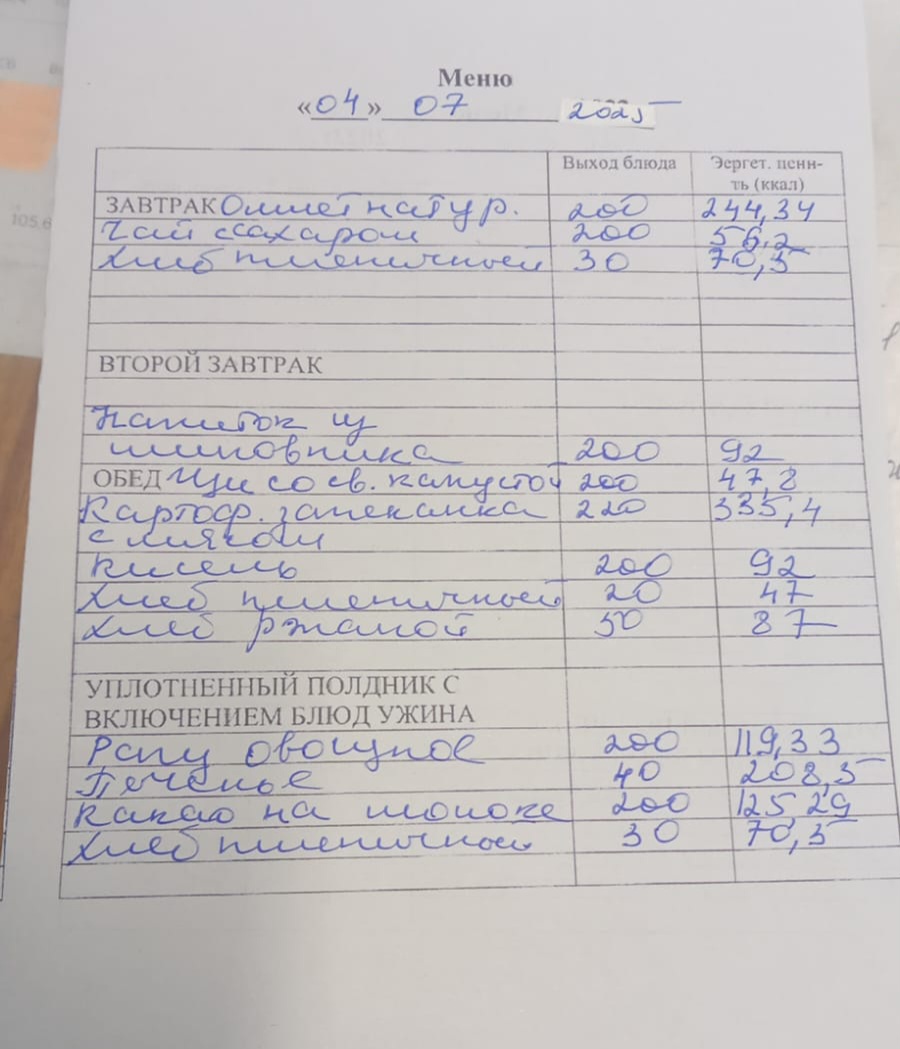 Меню
«04» 07 2025
Выход блюда Эергет. ценн-
ть (ккал)
ЗАВТРАК Омлет натур. 200 244,34
Чай с сахаром 200 56,2
Хлеб пшеничный 30 70,5
ВТОРОЙ ЗАВТРАК
Напиток из
шиповника 200 92
ОБЕД Щи со св. капустой 200 47,8
Картоф. запеканка 220 335,4
с мясом
Кисель 200 92
Хлеб пшеничный 20 47
Хлеб ржаной 50 87
УПЛОТНЕННЫЙ ПОЛДНИК С
ВКЛЮЧЕНИЕМ БЛЮД УЖИНА
Рагу овощное 200 119,33
Печенье 40 208,5
Какао на молоке 200 125,29
Хлеб пшеничный 30 70,5
105.6